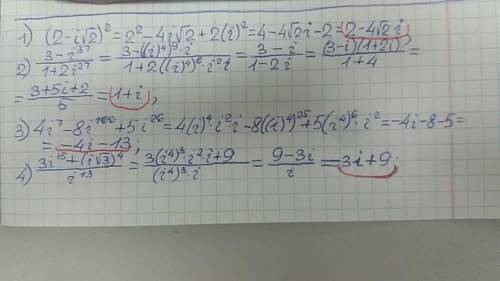 1) (2-i√2)²=2²-4i√2+2(i)²=4-4√2i-2=2-4√2i
2) (3-i³⁷)/(1+2i²⁷)=(3-((i)⁴)⁹·i)/(1+2((i)⁴)⁶·i²·i)=(3-i)/(1-2i)=((3-i)(1+2i))/(1+4)=
=(3+5i+2)/5=1+i;
3) 4i⁷-8i¹⁰⁰+5i²⁶=4(i)⁴·i²i-8((i)⁴)²⁵+5(i⁴)⁶·i²=-4i-8-5=
=-4i-13;
4) (3i¹⁵+(i√3)⁴)/i¹³=(3(i⁴)³·i²·i+9)/((i⁴)³·i)=(9-3i)/i=-3i+9.